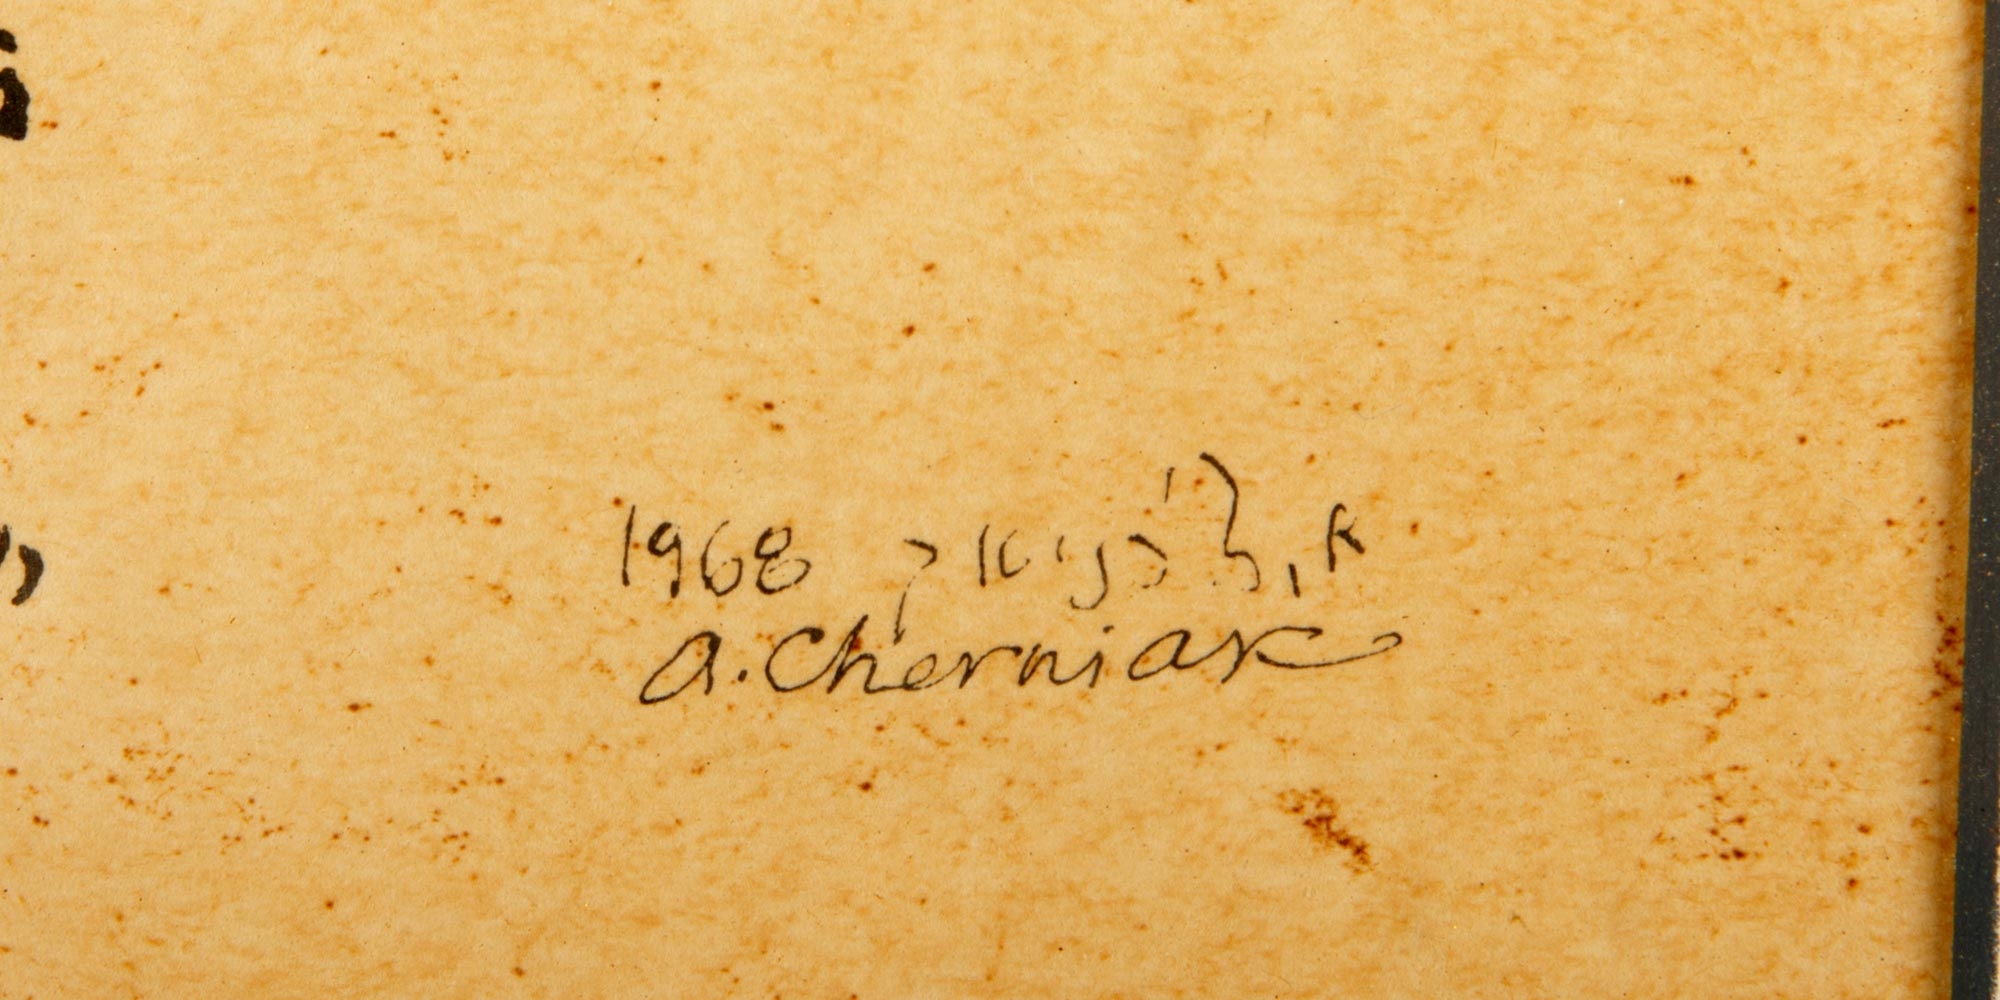 א. צ'רניאק 1968
a. Cherniak